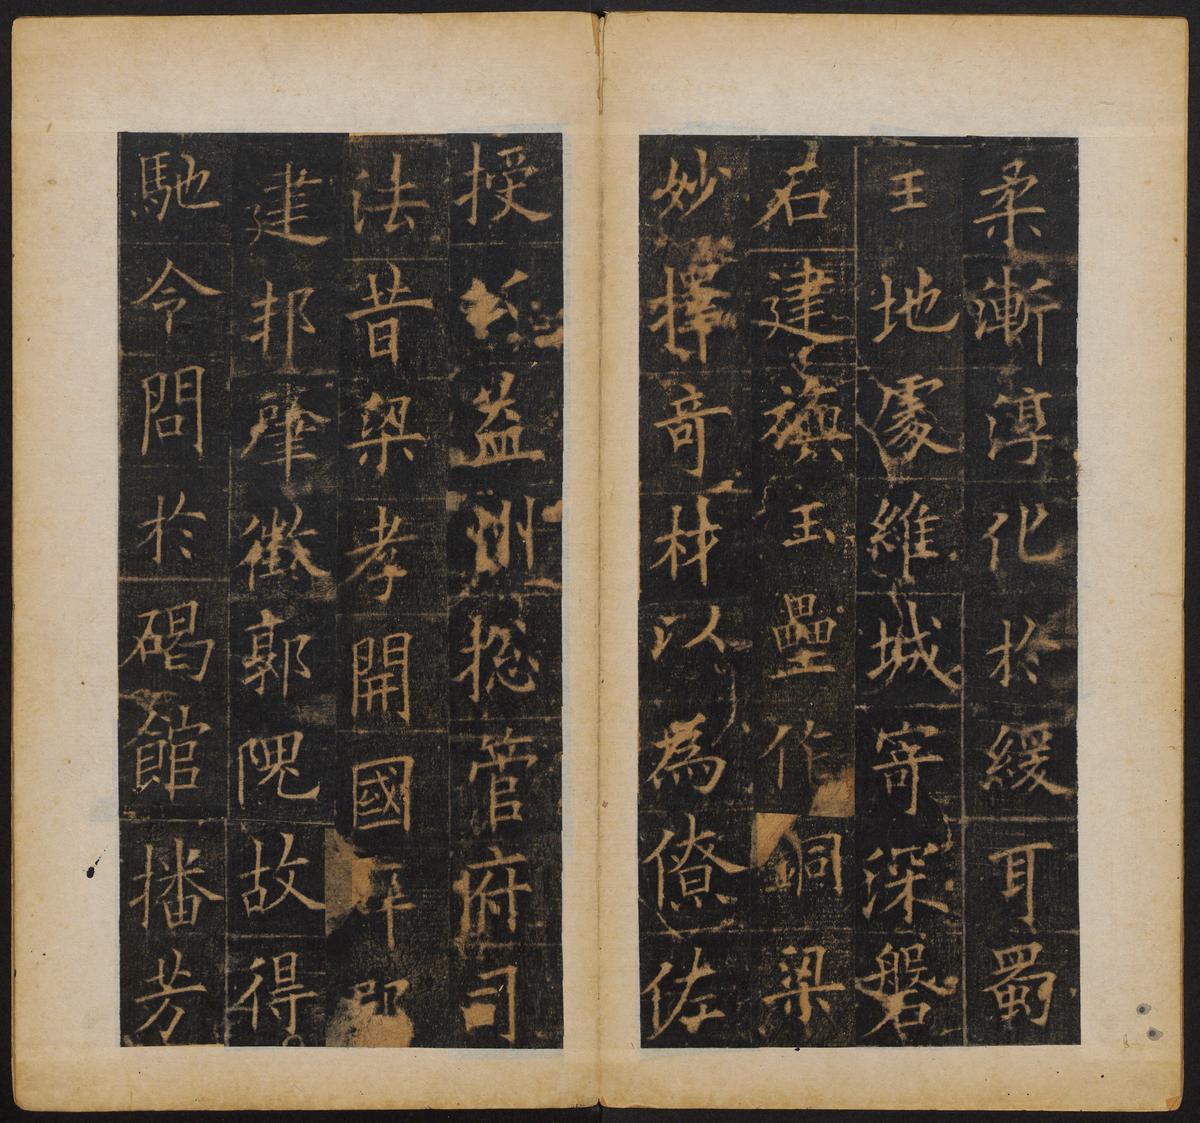 柔漸淳化於緩耳蜀
王地處維城寄深磐
石建旟玉壘作銅梁
妙擇奇材以為僚佐
授公益州揔管府司
法昔梁孝開國
建邦肇徵郭隗故得
馳令問於碣館播芳